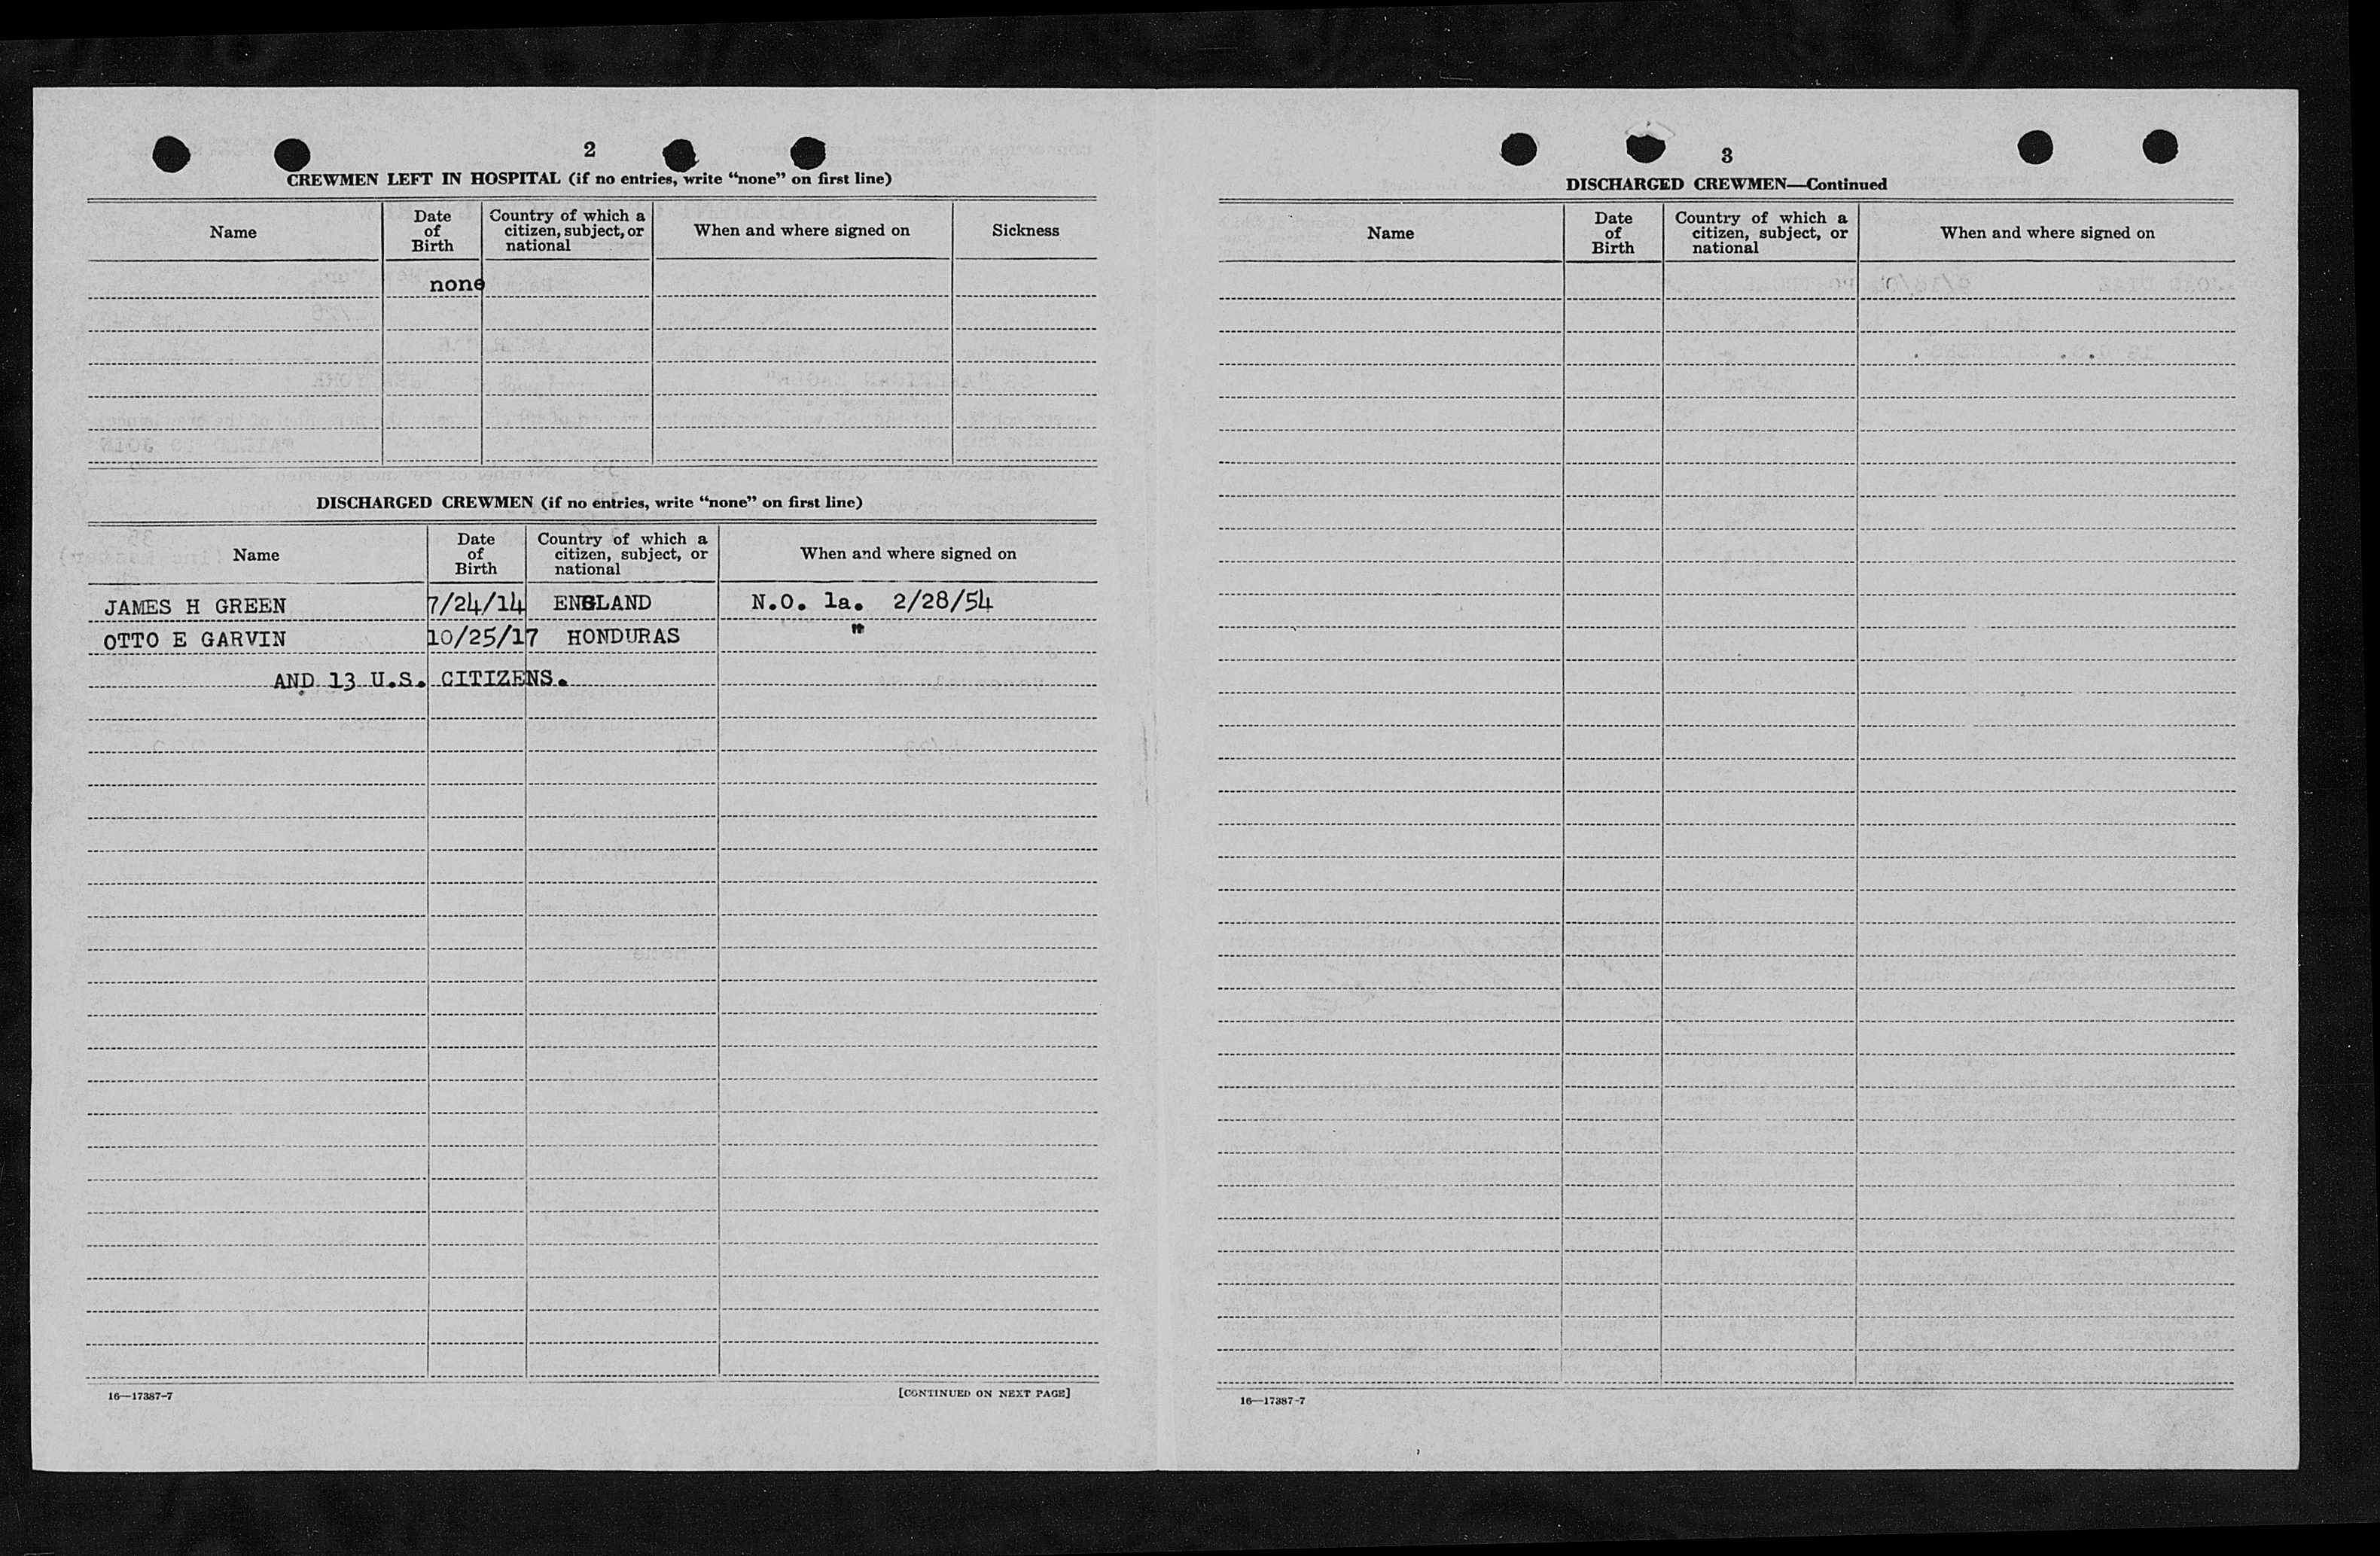 2
CREWMEN LEFT IN HOSPITAL (if no entries, write “none” on first line)
Name | Date of Birth | Country of which a citizen, subject, or national | When and where signed on | Sickness
none
DISCHARGED CREWMEN (if no entries, write “none” on first line)
Name | Date of Birth | Country of which a citizen, subject, or national | When and where signed on
JAMES H GREEN 7/24/14 ENGLAND N.O. la. 2/28/54
OTTO E GARVIN 10/25/17 HONDURAS "
AND 13 U.S. CITIZENS.
16—17387-7
[CONTINUED ON NEXT PAGE]
3
DISCHARGED CREWMEN—Continued
Name | Date of Birth | Country of which a citizen, subject, or national | When and where signed on
16—17387-7